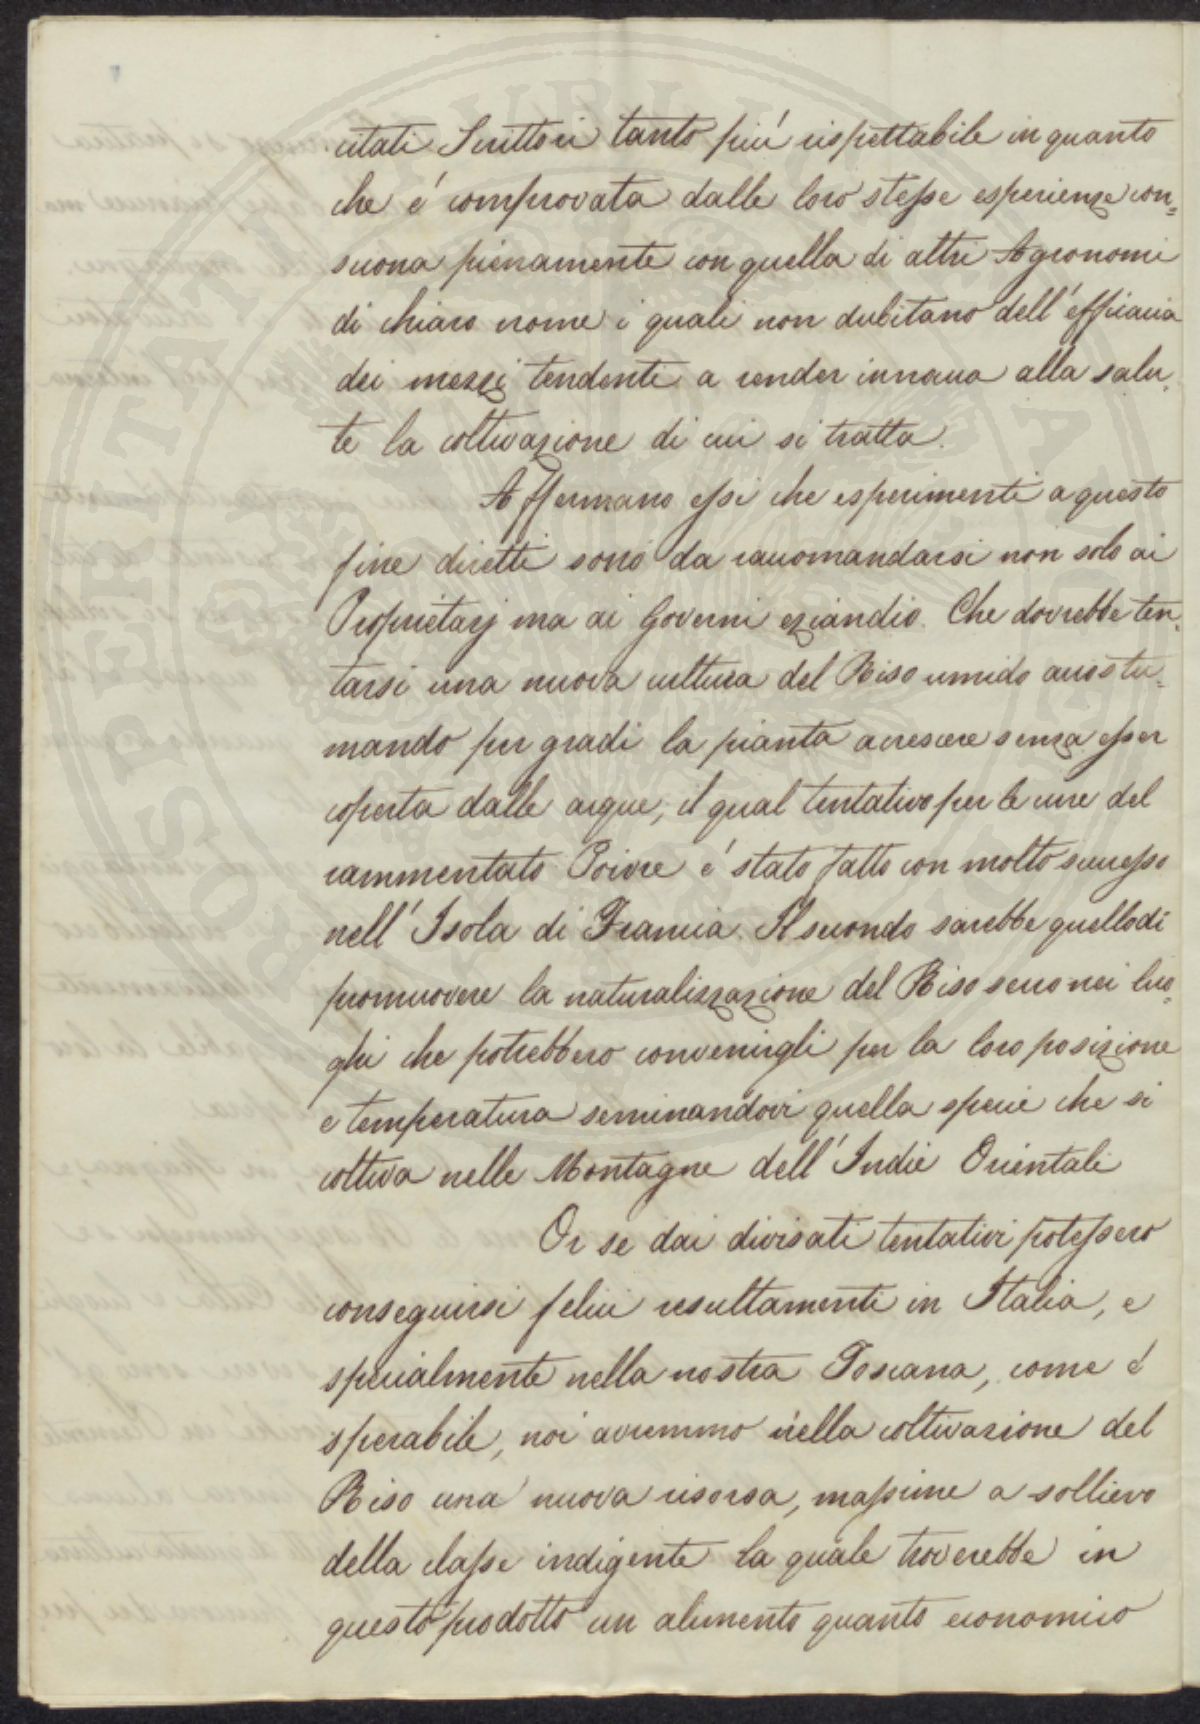 citati Scrittori tanto più rispettabile in quanto
che é comprovata dalle loro stesse esperienze con=
suona pienamente con quella di altri Agronomi
di chiaro nome i quali non dubitano dell'efficacia
dei mezzi tendenti a render innocua alla salu=
te la coltivazione di cui si tratta.
Affermano essi che esperimenti a questo
fine diretti sono da raccomandarsi non solo ai
Proprietarj ma ai Governi eziandio. Che dovrebbe ten=
tarsi una nuova cultura del Riso umido accostu=
mando per gradi la pianta a crescere senza esser
coperta dalle acque, il qual tentativo per le cure del
rammentato Poivre é stato fatto con molto successo
nell'Isola di Francia. Il secondo sarebbe quello di
promuovere la naturalizzazione del Riso secco nei luo=
ghi che potrebbero convenirgli per la loro posizione
e temperatura seminandovi quella specie che si
coltiva nelle Montagne dell'Indie Orientali
Or se dai divisati tentativi potessero
conseguirsi felici resultamenti in Italia, e
specialmente nella nostra Toscana, come é
sperabile, noi avremmo nella coltivazione del
Riso una nuova risorsa, massime a sollievo
della classe indigente la quale troverebbe in
questo prodotto un alimento quanto economico
PROSPERITATI PUBLICAE AUGENDAE